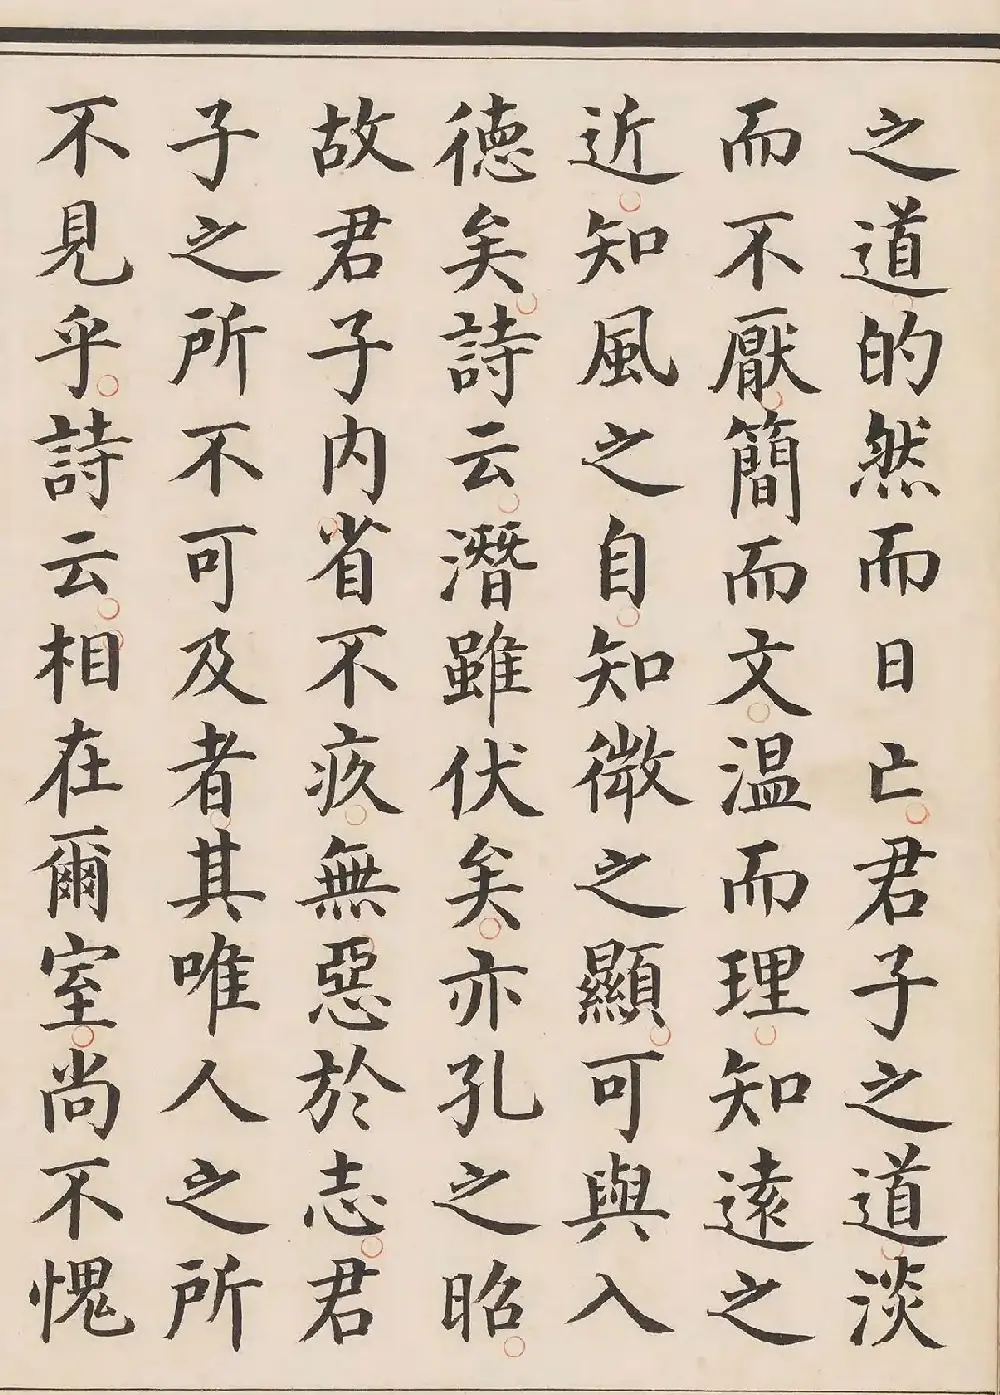 之道的然而日亡君子之道淡
而不厭簡而文温而理知遠之
近知風之自知微之顯可與入
德矣詩云潛雖伏矣亦孔之昭
故君子内省不疚無惡於志君
子之所不可及者其唯人之所
不見乎詩云相在爾室尚不愧